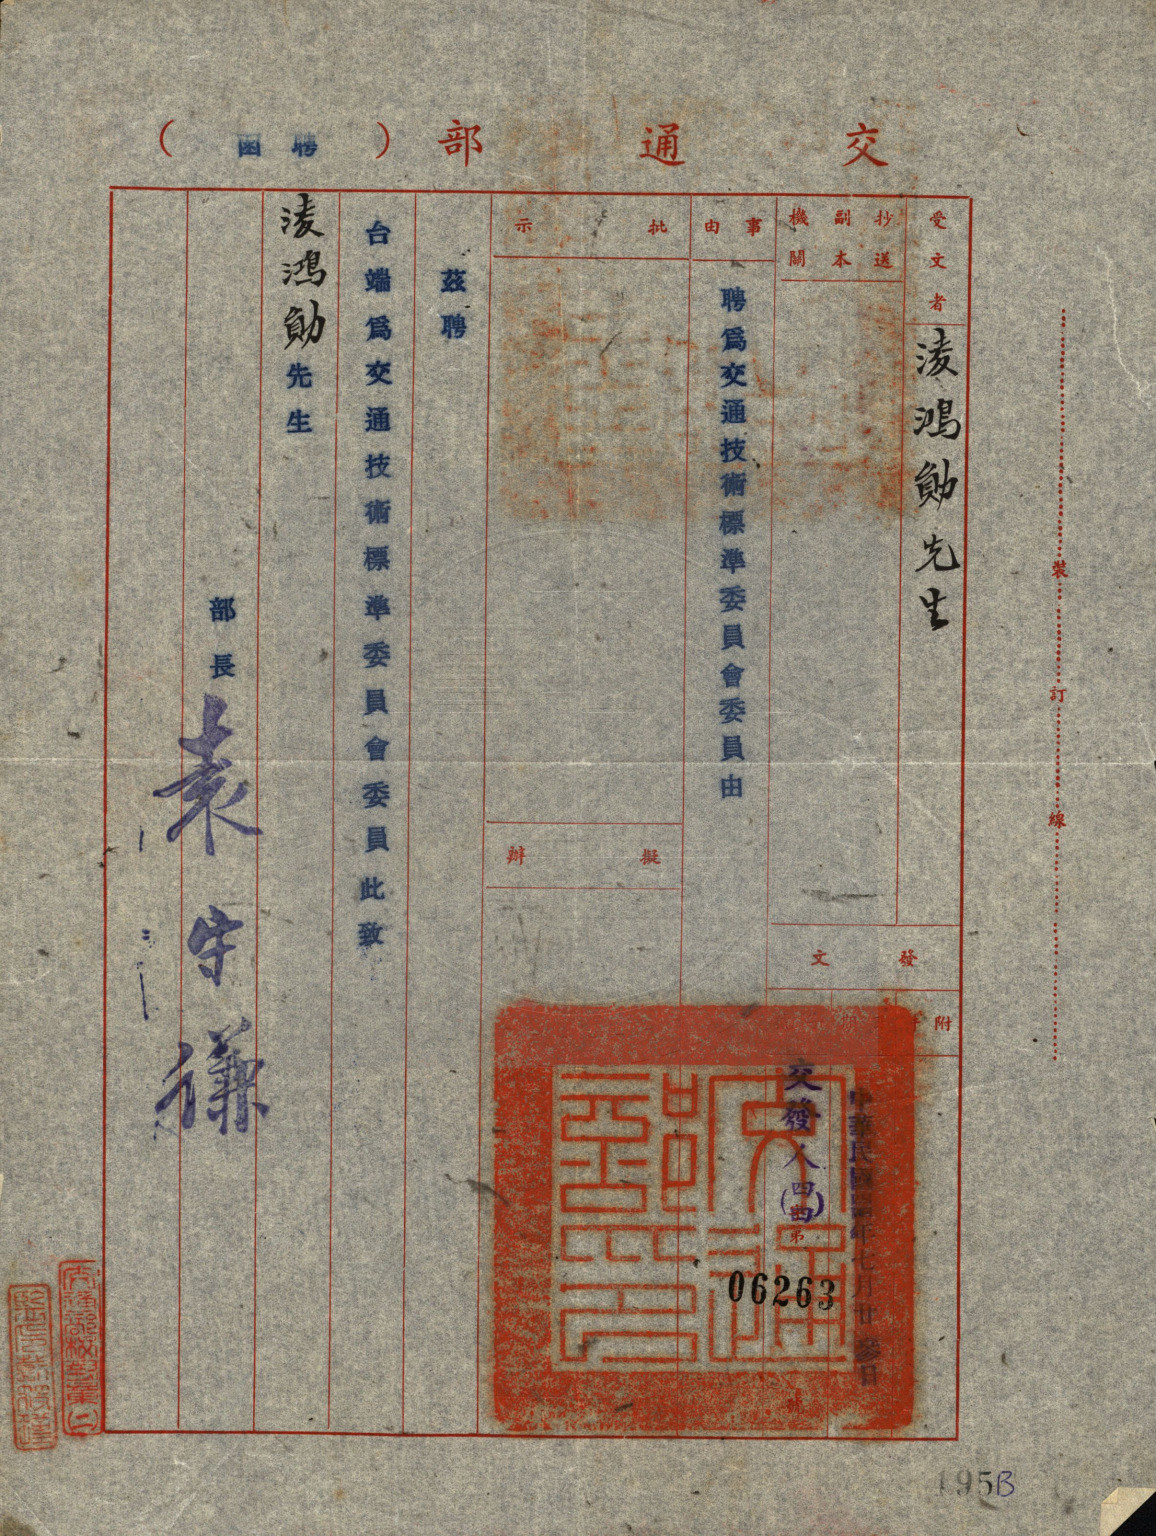 交通部（聘函）
受文者
凌鴻勛先生
抄送副本機關
事由
聘為交通技術標準委員會委員由
批示
擬辦
發文
附
中華民國四四年七月廿參日
交發人(四四)
第
06263
號
茲聘
台端為交通技術標準委員會委員此致
凌鴻勛先生
部長袁守謙
裝訂線
交通部
195B